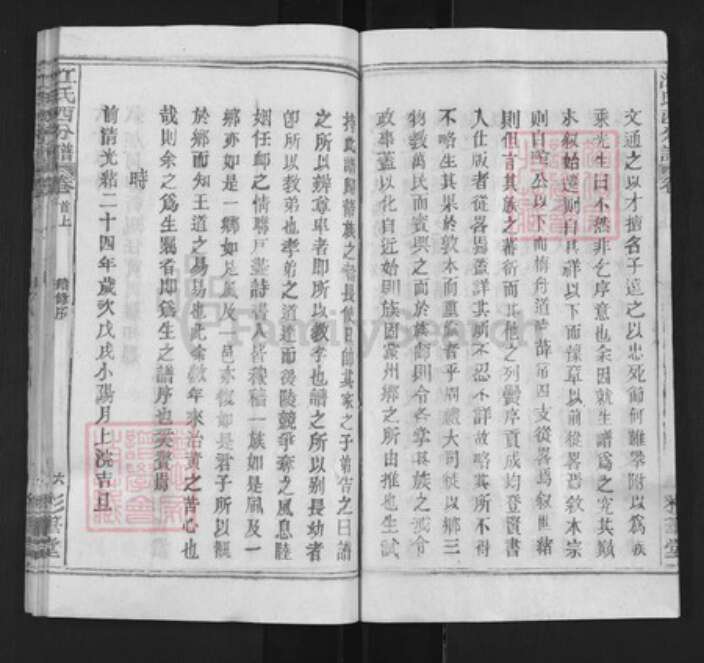 文通之以才擅名子達之以忠死節何難攀附以為族
乘光生曰不然非乞序意也余因就生譜為之究其巔
末叙始遷則自具祥以下而豫章以前從畧焉敘本宗
則自 公以下而梅舟道 薛 四支從畧焉叙世緒
則但言其族之蕃衍而其他之列黌序貢成均登賢書
入仕版者從畧焉蓋詳其所不忍不詳故略其所不得
不略生其果於敦本而重 者乎周禮大司徒以鄉三
物教萬民而賓興之而於族師則令各掌其族之戒令
政事蓋以化自近始則族固黨州鄉之所由推也生試
持此譜歸藉族之者長使日師其家之子弟告之曰譜
之所以辨尊卑者即所以教孝也譜之所以別長幼者
即所以教弟也孝弟之道達而後陵競爭奪之風息睦
婣任卹之情聯戸盡詩書人皆稼穡一族如是風及一
鄉亦如是一鄉如是風及一邑亦復如是君子所以觀
於鄉而知王道之易易也此余數年來治黃之苦心也
哉則余之為生勗者即為生之譜序也奚贅焉
時
前清光緒二十四年歲次戊戌小陽月上浣吉旦
江氏四分譜 卷首上
六
彩筆堂